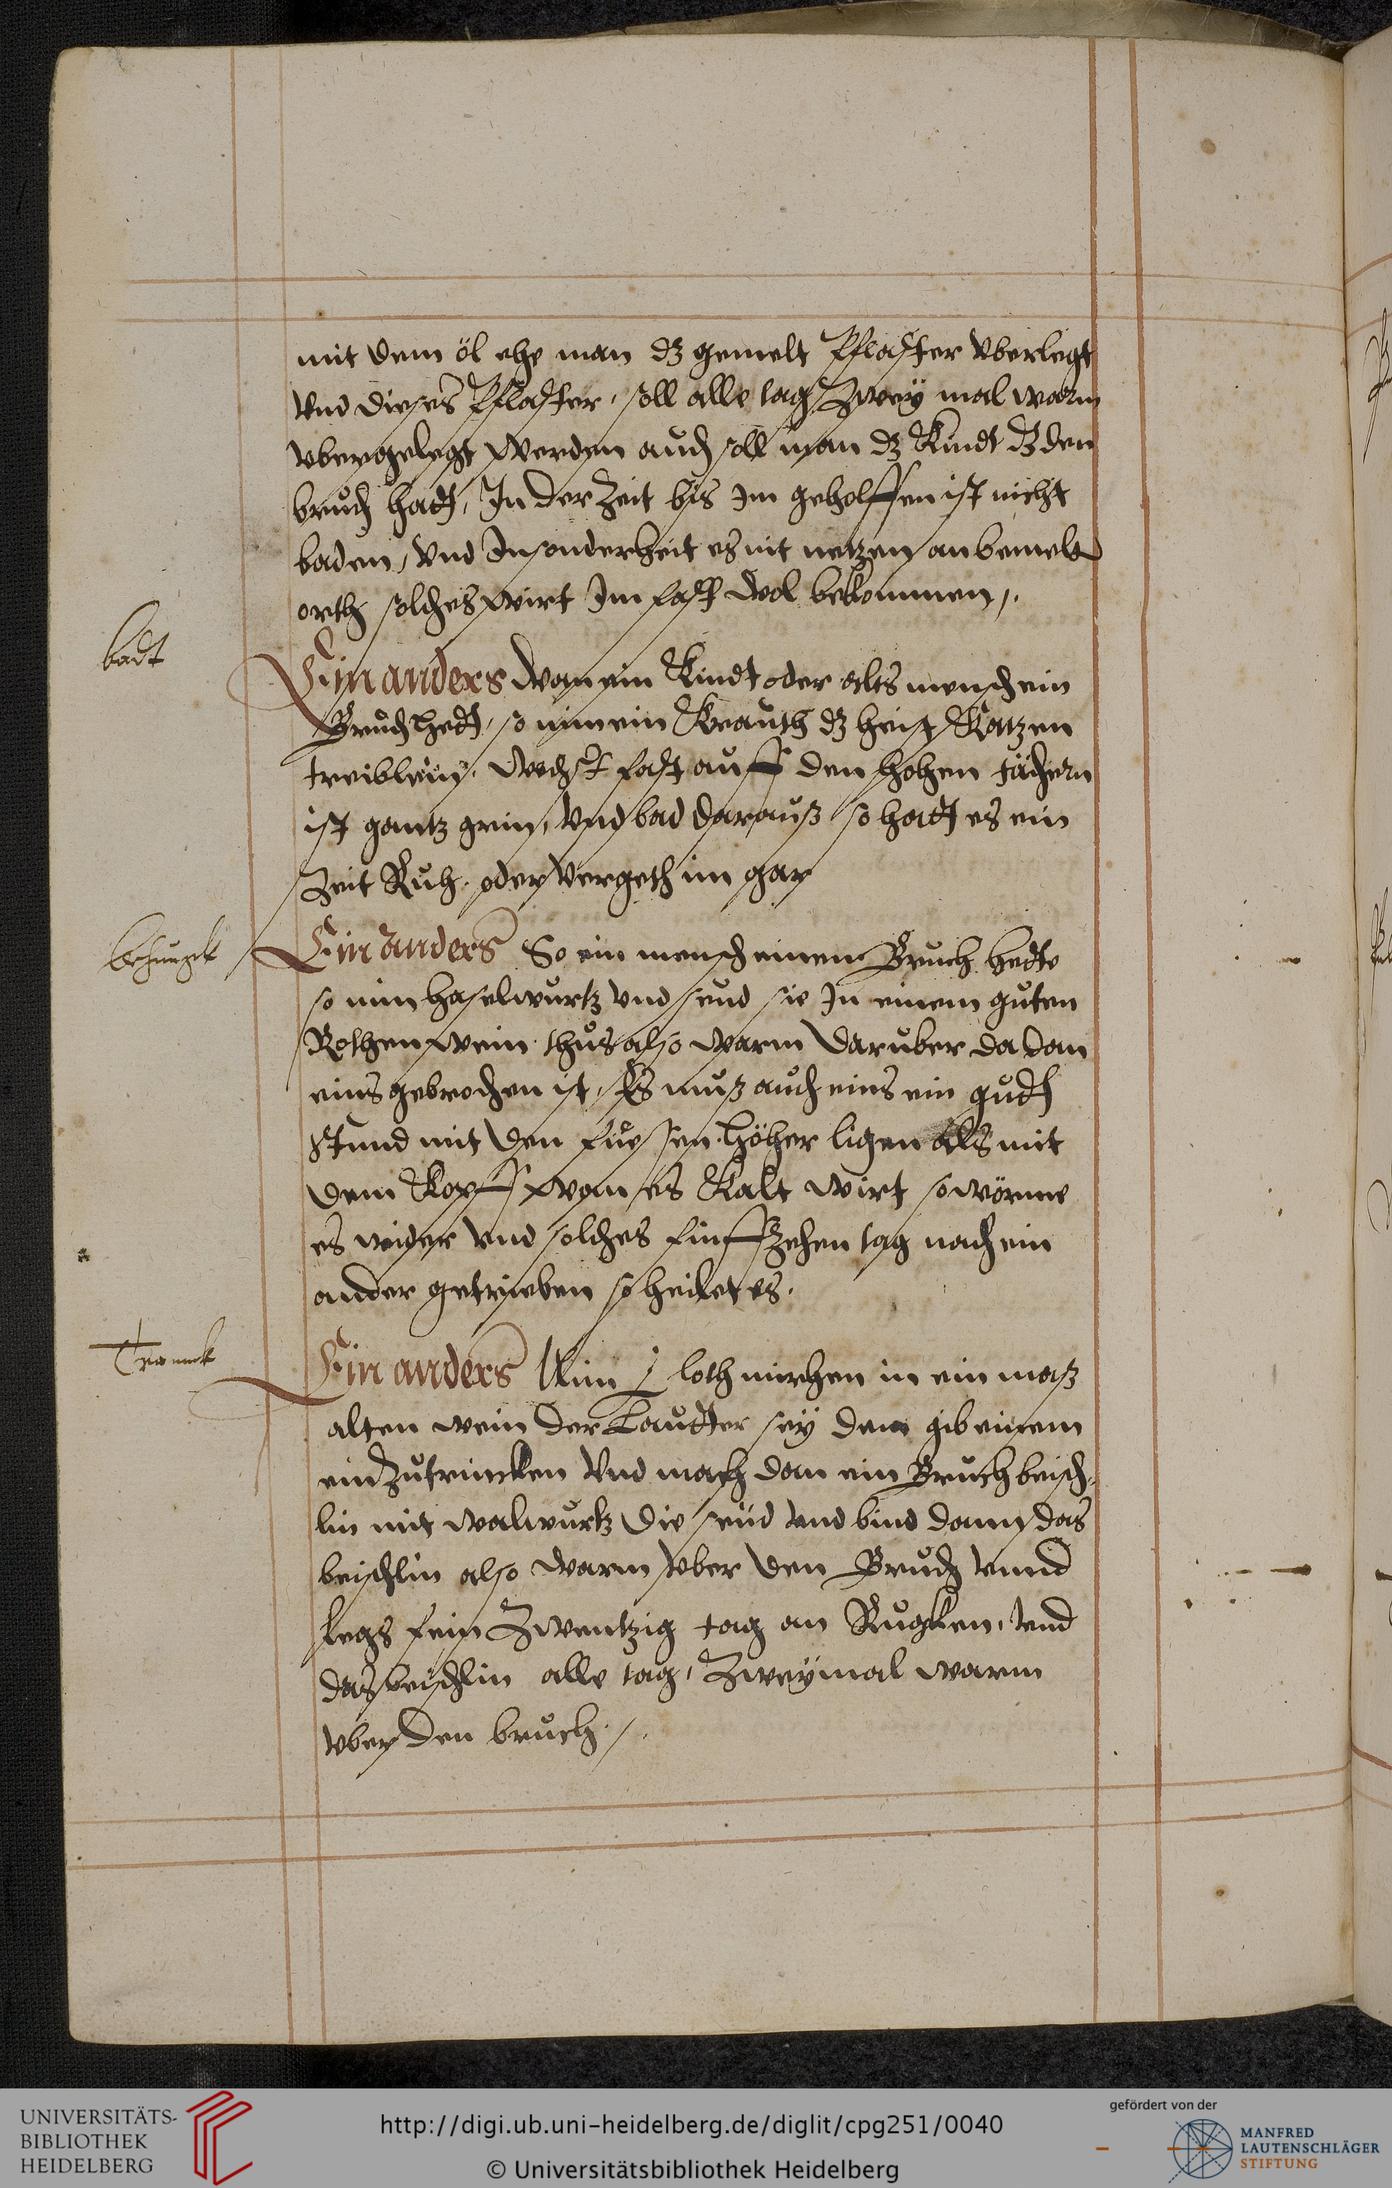 mit dem öl ehe man dz gemelt Pflaster vberlegt
vnd dieses Pflaster, soll alle tag Zwey mal warm
vbergelegt werden auch soll man dz Kindt dz den
bruch hatt, In der Zeit bis Im geholffen ist nicht
baden, vnd Insonderheit es nit netzen an bemelt
orth solches wirt Im fast wol bekommen,.
badt
Ein anders wan ein Kindt oder alts mensch ein
Bruch hett, so nim ein Krauth dz heist Katzen
treiblein, wechst fast auff den hohen tächern
ist gantz grin, vnd bad darauß so hatt es ein
Zeit Ruh, oder vergeth im gar
Ein anders So ein mensch einen Bruch hette
so nim haselwurtz vnd seud sie In einem guten
Rothen wein thus also warm daruber da dan
eins gebrochen ist, Es muß auch eins ein gutt
stund mit den fuessen höher ligen als mit
dem Kopff wan es Kalt wirt so wörme
es wider vnd solches finffzehen tag nach ein
ander getrieben so heilet es.
Tranck
Ein anders Nim j loth mirhen in ein maß
alten wein der Lautter sey dan gib einem
ein Zutrincken vnd mach dan ein Bruch beisch,
lin mit walwurtz die seud vnd bind dann das
beischlin also warm vber den Bruch vnnd
legs fein Zwentzig tag an Rugken, vnd
das beischlin alle tag, Zweymal warm
vber den bruch./.
UNIVERSITÄTS-
BIBLIOTHEK
HEIDELBERG
http://digi.ub.uni-heidelberg.de/diglit/cpg251/0040
© Universitätsbibliothek Heidelberg
gefördert von der
MANFRED
LAUTENSCHLÄGER
STIFTUNG